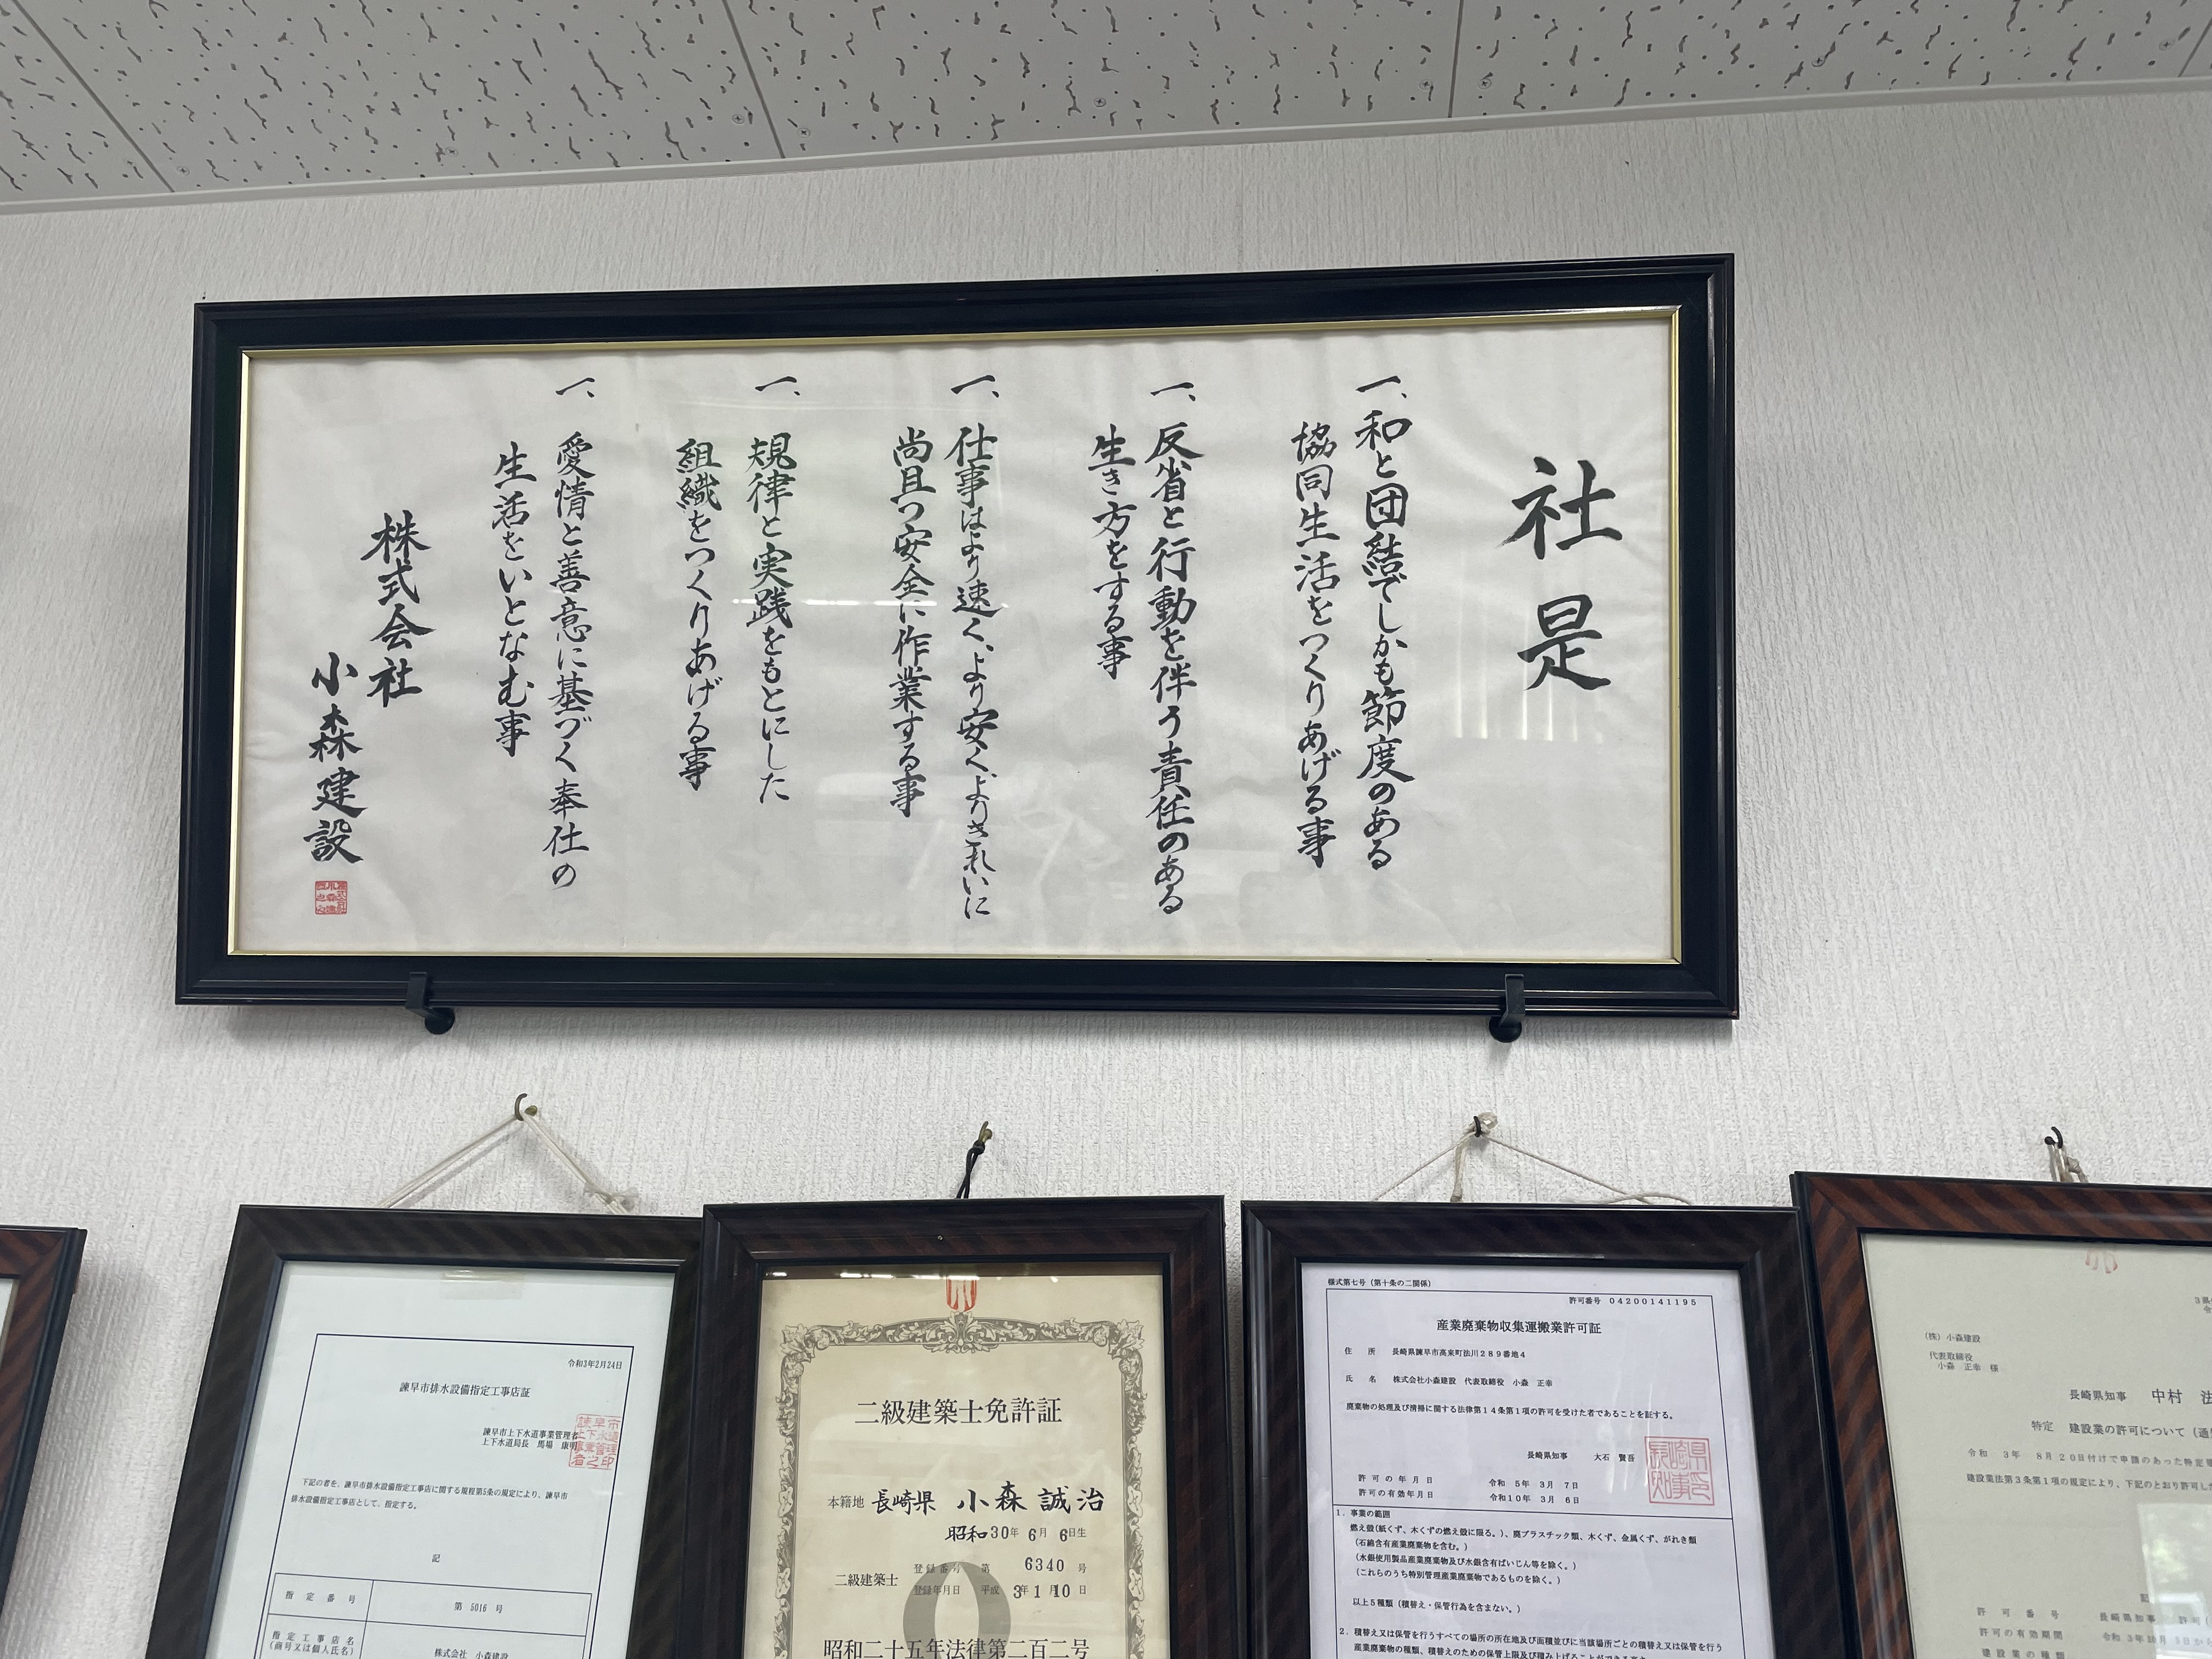 社是
一、和と団結でしかも節度のある
協同生活をつくりあげる事
一、反省と行動を伴う責任のある
生き方をする事
一、仕事はより速く、より安く、よりきれいに
尚且つ安全に作業する事
一、規律と実践をもとにした
組織をつくりあげる事
一、愛情と善意に基づく奉仕の
生活をいとなむ事
株式会社
小森建設
令和3年2月24日
諫早市排水設備指定工事店証
諫早市上下水道事業管理者
上下水道局長 馬場 康
下記の者を、諫早市排水設備指定工事店に関する規程第5条の規定により、諫早市
排水設備指定工事店として、指定する。
記
指定番号 第 5016 号
指定工事店名
(商号又は個人氏名) 株式会社 小森建設
二級建築士免許証
本籍地 長崎県 小森誠治
昭和30年 6月 6日生
二級建築士 登録番号 第 6340 号
登録年月日 平成 3年 1月 10日
昭和二十五年法律第二百二号
様式第七号(第十条の二関係)
許可番号 04200141195
産業廃棄物収集運搬業許可証
住所 長崎県諫早市高来町法川289番地4
氏名 株式会社小森建設 代表取締役 小森 正幸
廃棄物の処理及び清掃に関する法律第14条第1項の許可を受けた者であることを証する。
長崎県知事 大石 賢吾
許可の年月日 令和 5年 3月 7日
許可の有効年月日 令和10年 3月 6日
1. 事業の範囲
燃え殻(紙くず、木くずの燃え殻に限る。)、廃プラスチック類、木くず、金属くず、がれき類
(石綿含有産業廃棄物を含む。)
(水銀使用製品産業廃棄物及び水銀含有ばいじん等を除く。)
(これらのうち特別管理産業廃棄物であるものを除く。)
以上5種類(積替え・保管行為を含まない。)
2. 積替え又は保管を行うすべての場所の所在地及び面積並びに当該場所ごとの積替え又は保管を行う
産業廃棄物の種類、積替えのための保管上限及び積み上げることができる高さ
(株)小森建設
代表取締役
小森 正幸 様
長崎県知事 中村 法
特定 建設業の許可について(通
令和 3年 8月20日付けで申請のあった特定
建設業法第3条第1項の規定により、下記のとおり許可し
記
許可番号 長崎県知事 許可
許可の有効期間 令和 3年10月 5日から
建設業の種類